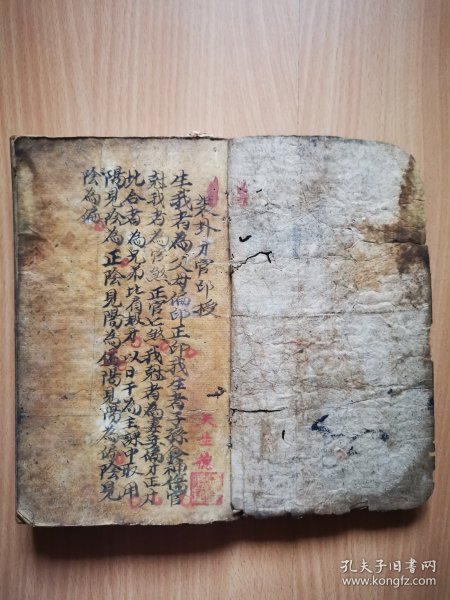 裝卦才官印授
生我者為父母偏印正印我生者子孫食神傷官
尅我者為官煞正官七煞我尅者為妻才偏才正才
比合者為兄弟比肩敗才以日干為主課中取用
陽見陰為正陰見陽為陽見陽為偏陰見
陰為偏
天生德
孔夫子旧书网
www.kongfz.com